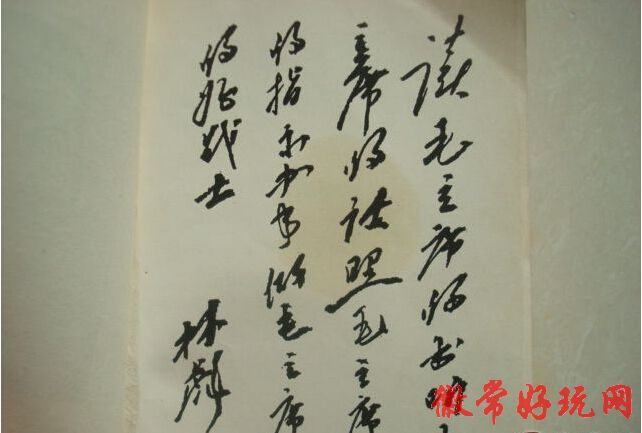 读毛主席的书听
主席的话照毛主席
的指示办事做毛主席
的好战士
林彪
徽常好玩网